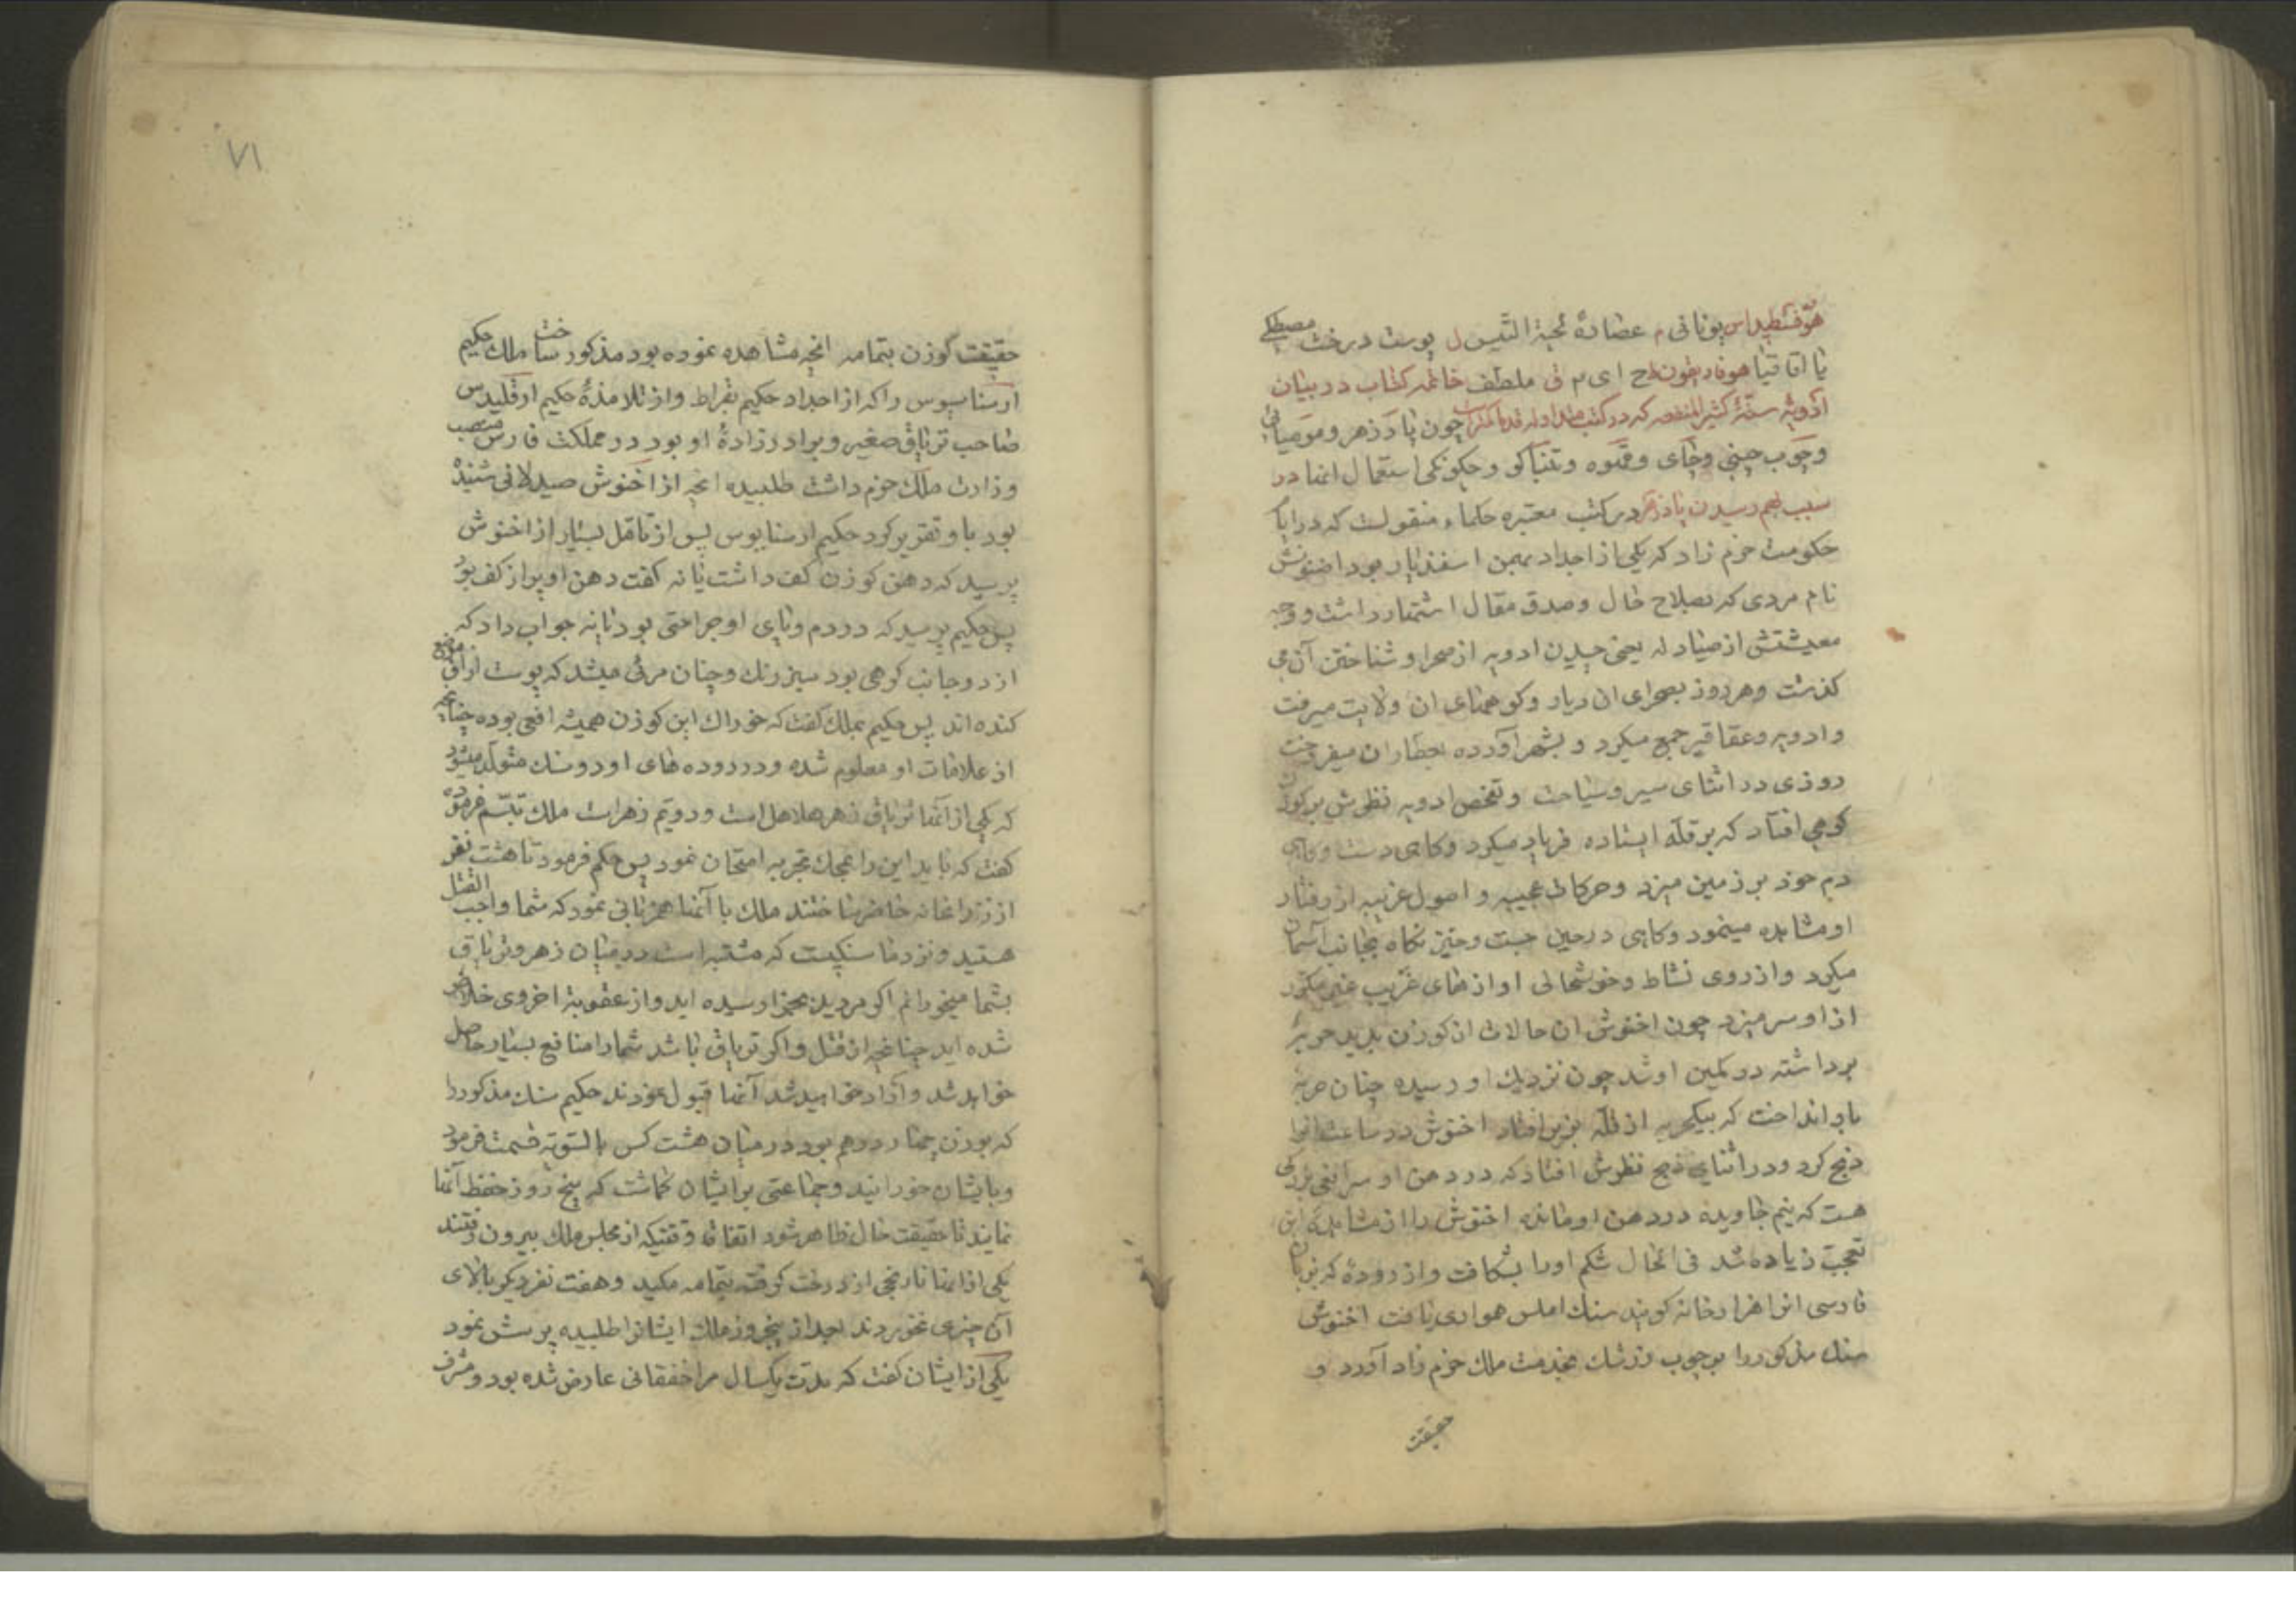 هوفسطیداس یونانی م عصارهٔ لحیة التیس ل پوست درخت مصطکی
یا اقاقیا هوفاریقون ح ای م ق ملطف خاتمه کتاب در بیان
ادویهٔ ستهٔ کثیر المنفعه که در کتب متداوله قدما کمتر است چون پادزهر و مومیائی
و چوب چینی و چای و قهوه و تنباکو و چکونکی استعمال انها در
سبب بهم رسیدن پادزهر در کتب معتبره حکماء منقولست که در ایام
حکومت خرم زاد که یکی از اجداد بهمن اسفندیار بود اخنوش
نام مردی که بصلاح حال و صدق مقال اشتهار داشت و وجه
معیشتش از صیادله یعنی چیدن ادویه از صحرا و شناختن آن می
کذشت و هر روز بصحرای ان دیار و کوههای ان ولایت میرفت
و ادویه و عقاقیر جمع میکرد و بشهر آورده بعطاران میفروخت
روزی در اثنای سیر و سیاحت و تفحص ادویه نظرش بر کوزن
کوهی افتاد که بر قله ایستاده فریاد میکرد و کاهی دست و پای
دم خود بر زمین میزد و حرکات عجیبه و اصول غریبه از رفتار
او مشاهده مینمود و کاهی در حین جست و خیز نکاه بجانب آسمان
میکرد و از روی نشاط و خوشحالی اوازهای غریب غیر مکرر
از او سر میزد چون اخنوش ان حالات از کوزن بدید حربهٔ
برداشته در کمین او شد چون نزدیک او رسیده چنان حربه
باو انداخت که بیکحربه از قله بزیر افتاد اخنوش در ساعت انرا
ذبح کرد و در اثنای ذبح نظرش افتاد که در دهن او سر افعی بزرکی
هست که نیم خاویده در دهن او مانده اخنوش را از مشاهدهٔ این
تعجب زیاده شد فی الحال شکم اورا بشکافت و از رودهٔ که بزبان
فارسی انرا هزارخانه کویند سنک املس همواری یافت اخنوش
سنک مذکور را بر چوب و زشک بخدمت ملک خرم زاد آورد و
حقیقت
۷۱
حقیقت کوزن بتمامه انچه مشاهده نموده بود مذکور ساخت ملک حکیم
ارسناسیوس را که از اجداد حکیم بقراط و از تلامذهٔ حکیم ارقلیدس
صاحب تریاق صغیر و برادرزادهٔ او بود در مملکت فارس منصب
وزارت ملک خرم داشت طلبیده انچه از اخنوش صیدلانی شنیده
بود باو تقریر کرد حکیم ارسنایوس پس از تامل بسیار از اخنوش
پرسید که دهن کوزن کف داشت یا نه کفت دهن او پر از کف بود
پس حکیم پرسید که در دم و پای او جراحتی بود یا نه جواب داد که
از دو جانب کوهی بود سبز رنک و چنان مرئی میشد که پوست از آن موضع
کنده اند پس حکیم بملک کفت که خوراک این کوزن همیشه افعی بوده چنانچه
از علامات او معلوم شده و در روده های او دو سنک متولد میشود
که یکی از آنها تریاق زهر هلاهل است و دویم زهراست ملک تبسم فرموده
کفت که باید این را بمحک تجربه امتحان نمود پس حکم فرمود تا هشت نفر
از زندانخانه حاضر ساختند ملک با آنها همزبانی نمود که شما واجب القتل
هستید و نزد ما سنکیست که مشتبه است در میان زهر و تریاق
بشما میخورانم اکر مردید بجزا رسیده اید و از عقوبة اخروی خلاص
شده اید چنانچه از قتل و اکر تریاق باشد شما را منافع بسیار حاصل
خواهد شد و آزاد خواهید شد آنها قبول نمودند حکیم سنک مذکور را
که بوزن چهار درهم بود در میان هشت کس بالسویه قسمت فرمود
و بایشان خورانید و جماعتی بر ایشان کماشت که پنج روز حفظ آنها
نمایند تا حقیقت حال ظاهر شود اتفاقا وقتیکه از مجلس ملک بیرون رفتند
یکی از انها نارنجی از درخت کرفته بتمامه مکید و هفت نفر دیکر بالای
آن چیزی نخوردند بعد از پنجروز ملک ایشانرا طلبیده پرسش نمود
یکی از ایشان کفت که مدت یکسال مرا خفقانی عارض شده بود و مشرف